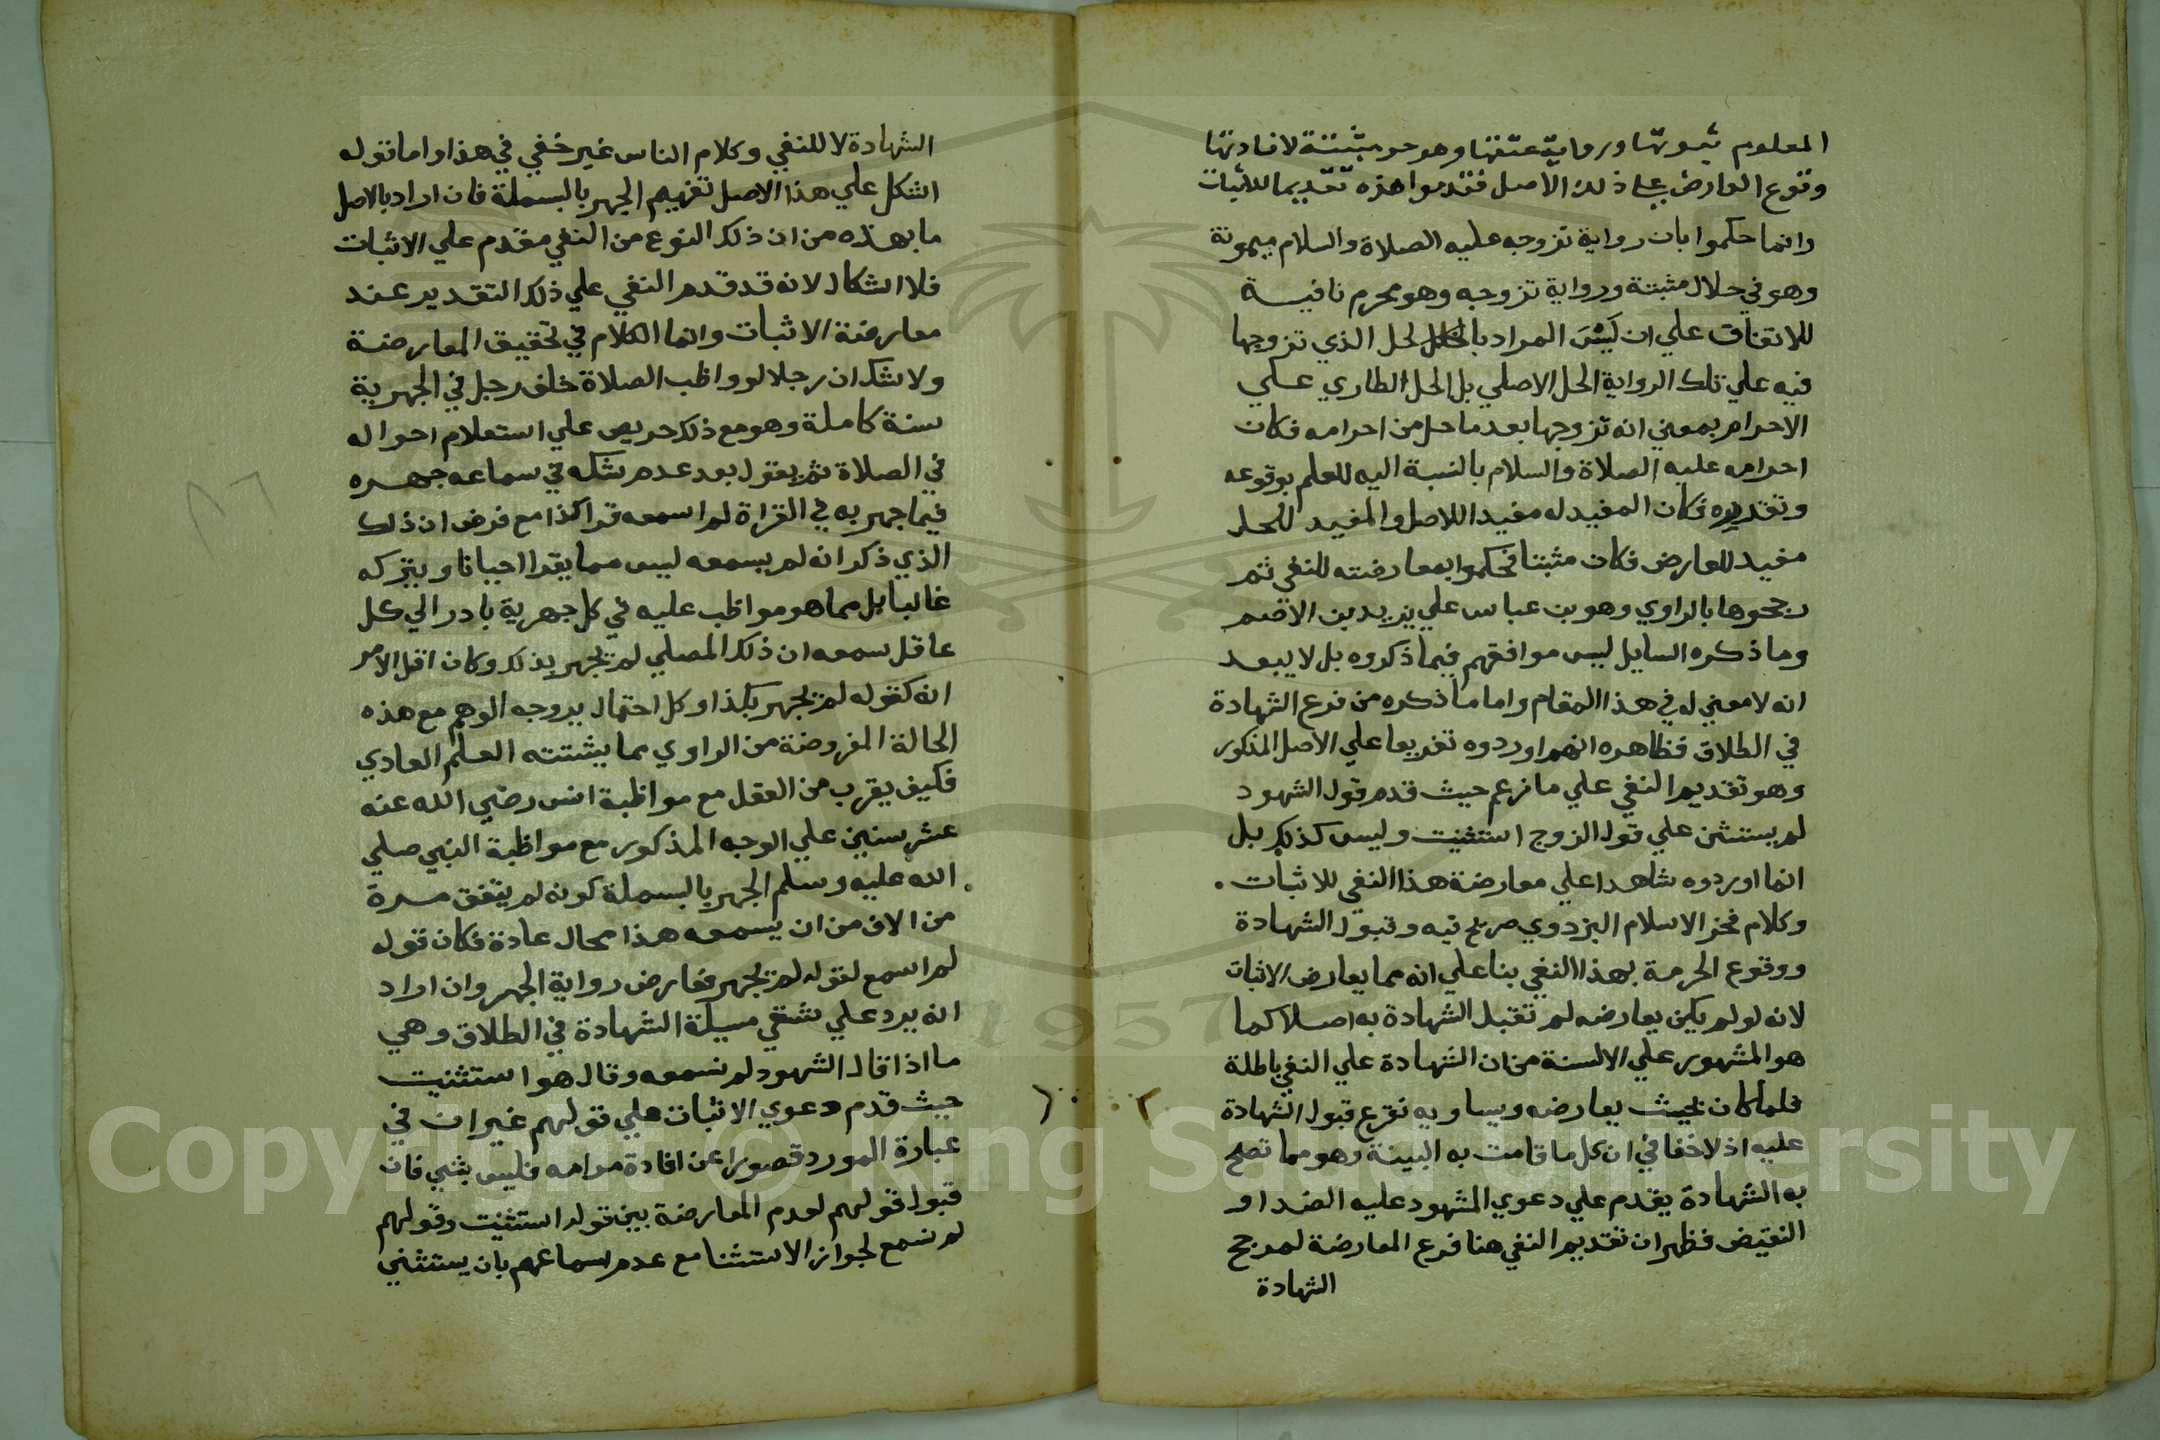 المعلوم ثبوتها ورواية عتقها وهو حر مثبتة لافادتها
وقوع العارض علي ذلك الاصل فقدموا هذه تقديما للاثبات
وانما حكموا بان رواية تزوجه عليه الصلاة والسلام ميمونة
وهو في حلال مثبتة ورواية تزوجه وهو محرم نافية
للاتفاق علي ان ليس المراد بالحل الحل الذي تزوجها
فيه علي تلك الرواية الحل الاصلي بل الحل الطاري علي
الاحرام بمعني انه تزوجها بعد ما حل من احرامه فكان
احرامه عليه الصلاة والسلام بالنسبة اليه للعلم بوقوعه
وتقديره فكان المفيد له مفيدا للاصل والمفيد للحل
مفيد للعارض فكان مثبتا فحكموا بمعارضته للنفي ثم
رجحوها بالراوي وهو بن عباس علي يزيد بن الاصم
وما ذكره السايل ليس موافقهم فيما ذكروه بل لا يبعد
انه لا معني له في هذا المقام واما ما ذكره من فرع الشهادة
في الطلاق فظاهره انهم اوردوه تفريعا علي الاصل المذكور
وهو تقديم النفي علي ما زعم حيث قدم قول الشهود
لم يستثن علي قول الزوج استثنيت وليس كذلك بل
انما اوردوه شاهدا علي معارضة هذا النفي للاثبات
وكلام فخر الاسلام البزدوي صريح فيه وقبول الشهادة
ووقوع الحرمة بهذا النفي بنا علي انه مما يعارض الاثبات
لانه لو لم يكن يعارضه لم تقبل الشهادة به اصلا كما
هو المشهور علي الالسنة من ان الشهادة علي النفي باطلة
فلما كان بحيث يعارضه ويساويه تفرع قبول الشهادة
عليه اذ لا خفا في ان كل ما قامت به البينة وهو مما تصح
به الشهادة يقدم علي دعوي المشهود عليه الضد او
النقيض فظهر ان تقديم النفي هنا فرع المعارضة لمرجح
الشهادة
الشهادة لا للنفي وكلام الناس غير خفي في هذا واما قوله
اشكل علي هذا الاصل تقديم الجهر بالبسملة فان اراد بالاصل
ما بهذه من ان ذلك النوع من النفي مقدم علي الاثبات
فلا اشكال لانه قد قدم النفي علي ذلك التقدير عند
معارضة الاثبات وانما الكلام في تحقيق المعارضة
ولا شك ان رجلا لو واظب الصلاة خلف رجل في الجهرية
سنة كاملة وهو مع ذلك حريص علي استعلام احواله
في الصلاة ثم يقول بعد عدم شكه في سماعه جهره
فيما جهر به في القراة لم اسمعه قرا كذا مع فرض ان ذلك
الذي ذكر انه لم يسمعه ليس مما يقرا احيانا ويتركه
غالبا بل مما هو مواظب عليه في كل جهرية بادر الي كل
عاقل سمعه ان ذلك المصلي لم يجهر بذلك وكان اقل الامر
انه كقوله لم يجهر بكذا وكل احتمال يروجه الوهم مع هذه
الحالة المفروضة من الراوي مما يشتته العلم العادي
فكيف يقرب من العقل مع مواظبة انس رضي الله عنه
عشر سنين علي الوجه المذكور مع مواظبة النبي صلي
الله عليه وسلم الجهر بالبسملة كونه لم يتفق مرة
من الاف من ان يسمعه هذا محال عادة فكان قوله
لم اسمع لقوله لم يجهر فعارض رواية الجهر وان اراد
انه يرد علي شقي مسيلة الشهادة في الطلاق وهي
ما اذا قال الشهود لم نسمعه وقال هو استثنيت
حيث قدم دعوي الاثبات علي قولهم غير ان في
عبارة المورد قصورا عن افادة مرامه فليس بشي فان
قبول قولهم لعدم المعارضة بين قوله استثنيت وقولهم
لم نسمع لجواز الاستثنا مع عدم سماعهم بان يستثني
Copyright © King Saud University
1957